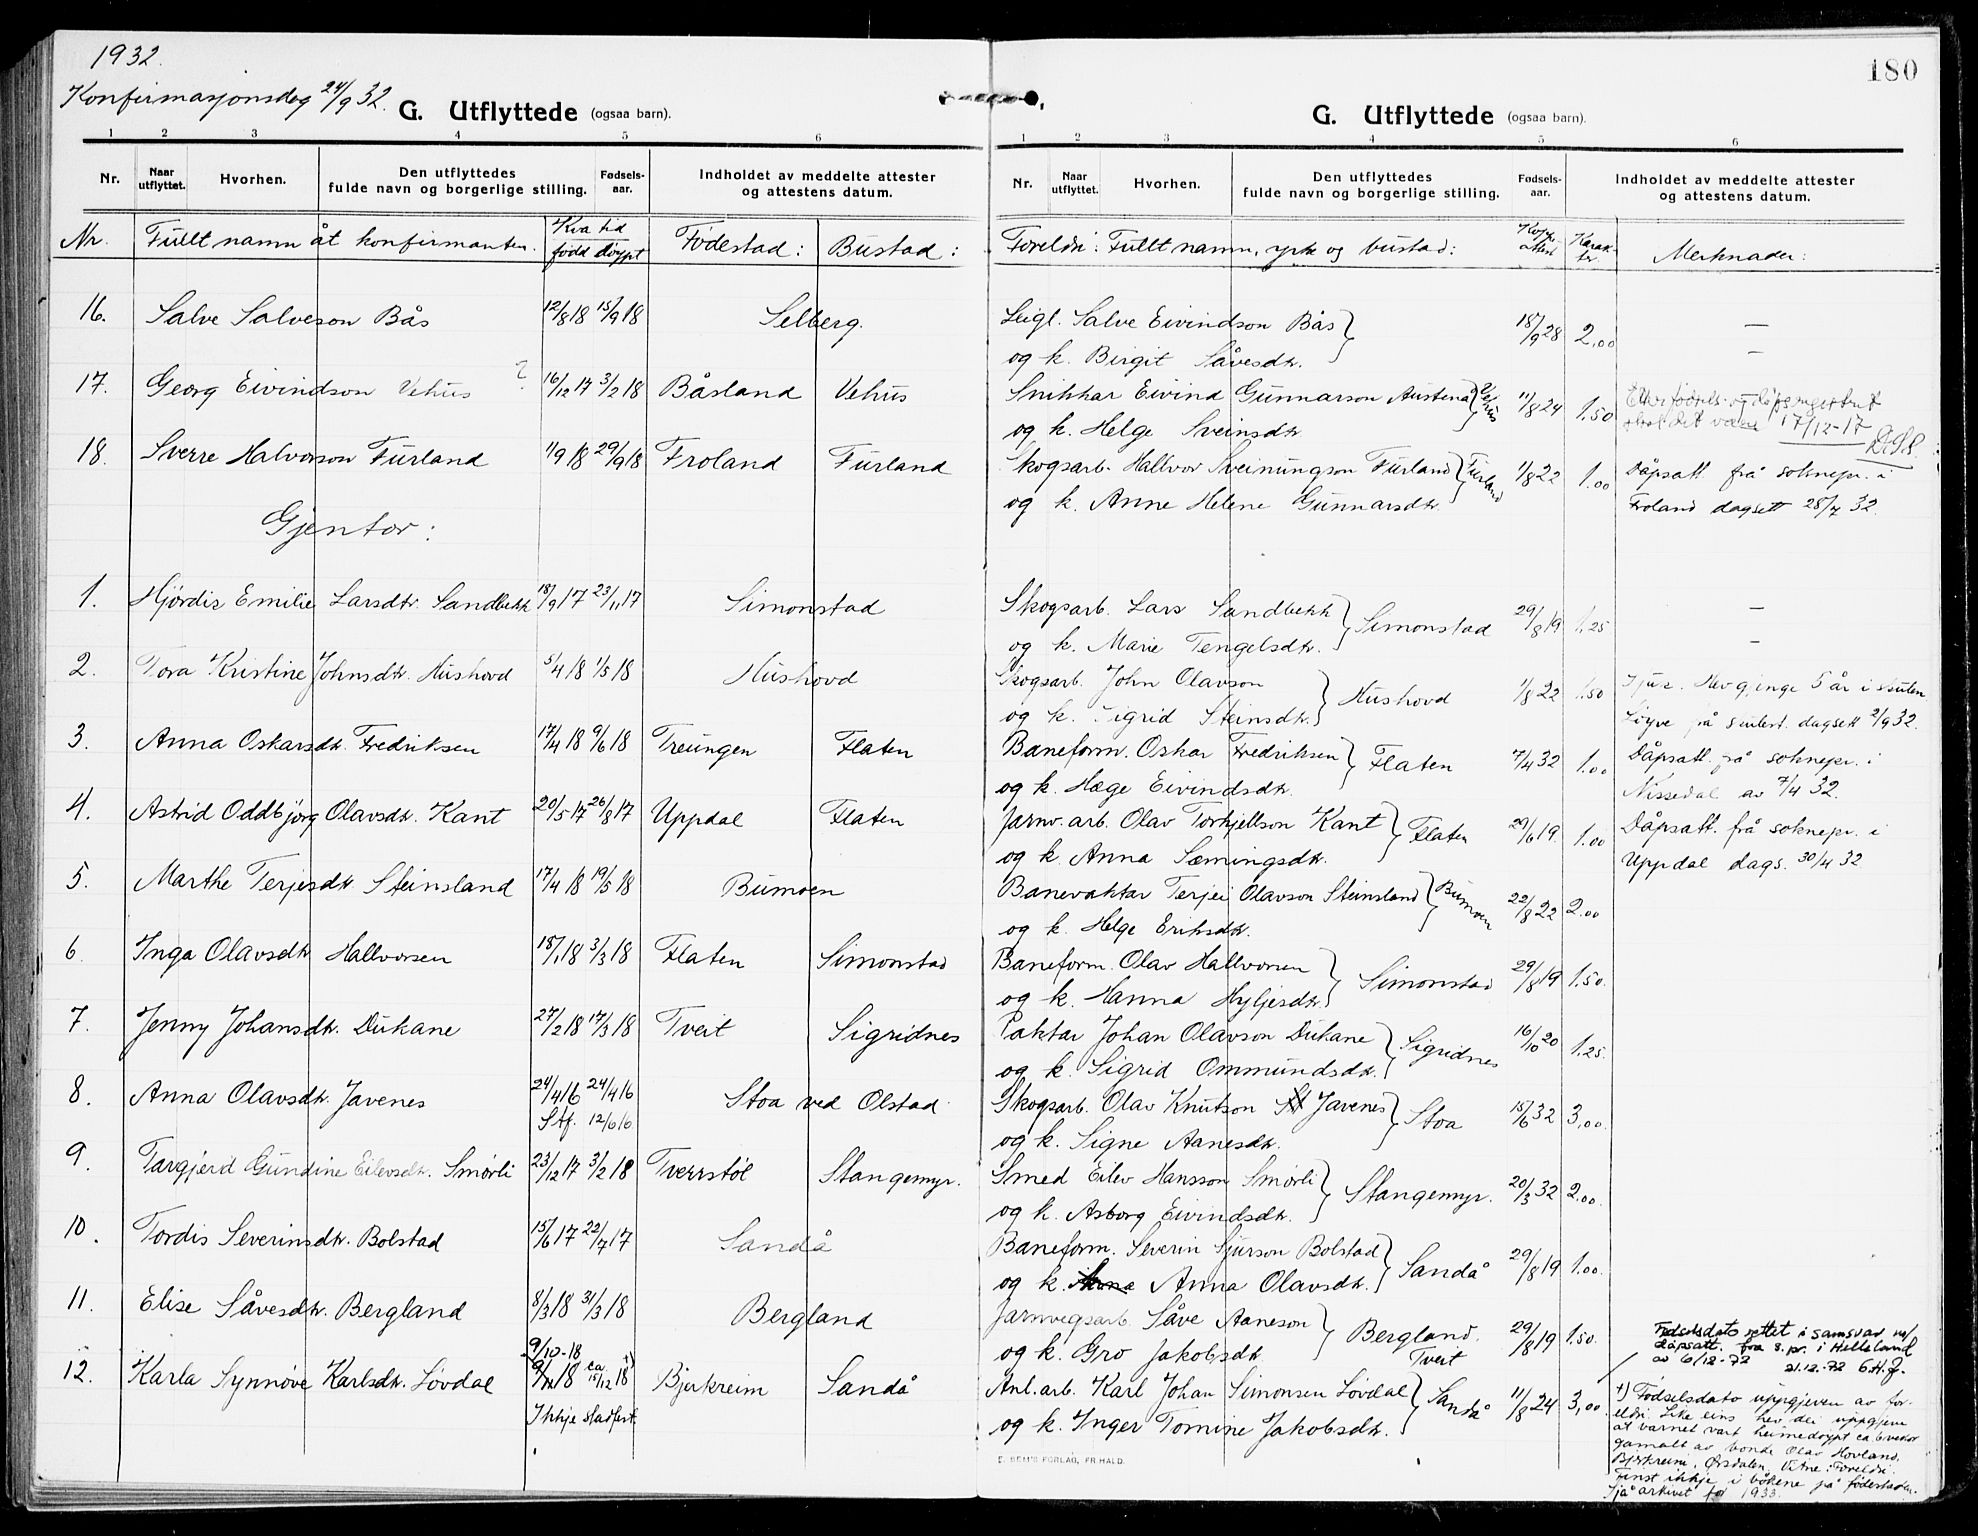 1932.
Konfirmasjonsdag 24/9 32.
G. Utflyttede (ogsaa barn).
1 2 3 4 5 6
Nr. Naar utflyttet. Hvorhen. Den utflyttedes fulde navn og borgerlige stilling. Fødsels-aar. Indholdet av meddelte attester og attestens datum.
Nr. Fullt namn åt konfirmanten. Kva tid født døypt Fødestad: Bustad:
16. Salve Salveson Bås 12/8 18 15/9 18 Selberg.
17. Georg Eivindson Vehus ? 16/12 17 3/2 18 Båsland Vehus
18. Sverre Halvorson Furland 1/9 18 29/9 18 Froland Furland
Gjentor:
1. Hjørdis Emilie Larsdtr. Sandbekk 18/9 17 23/11 17 Simonstad
2. Tora Kristine Johnsdtr. Hushovd 5/4 18 1/5 18 Hushovd
3. Anna Oskarsdtr. Fredriksen 17/4 18 9/6 18 Treungen Flaten
4. Astrid Oddbjørg Olavsdtr. Kant 20/5 17 26/8 17 Uppdal Flaten
5. Marthe Terjesdtr Steinsland 17/4 18 19/5 18 Bumoen
6. Inga Olavsdtr Hallvorsen 18/1 18 3/3 18 Flaten Simonstad
7. Jenny Johansdtr. Dukane 27/2 18 17/3 18 Tveit Sigridnes
8. Anna Olavsdtr. Javenes 24/4 16 24/4 16 Stoa ved Olstad
Stf. 12/6 16
9. Targjerd Gundine Eilevsdtr. Smørli 23/12 17 3/2 18 Tverrstøl Stangemyr.
10. Tordis Severinsdtr. Bolstad 15/6 17 22/7 17 Sandå
11. Elise Såvesdtr. Bergland 8/3 18 31/3 18 Bergland
9/10-18
12. Karla Synnøve Karlsdtr. Løvdal 9/11 18 ca 15/12 18 +) Bjerkreim Sandå
Ikkje stadfest.
180
G. Utflyttede (ogsaa barn).
1 2 3 4 5 6
Nr. Naar utflyttet. Hvorhen. Den utflyttedes fulde navn og borgerlige stilling. Fødsels-aar. Indholdet av meddelte attester og attestens datum.
Foreldri: Fullt namn, yrke og bustad: Kopp. attest Karak-ter. Merknader:
Leigl. Salve Eivindson Bås 18/9 28 2,00 —
og k. Birgit Såvesdtr. —
Snikkar Eivind Gunnarson Austenå Vehus 11/8 24 1.50
og k. Helge Sveinsdtr. skal det være 17/12-17
Skogsarb. Hallvor Sveinungson Furland Furland 1/8 22 1.00 Dåpsatt. frå soknepr. i
og k. Anne Helene Gunnarsdtr. Froland dagsett 28/7 32.
Skogsarb. Lars Sandbekk Simonstad 29/8 19 1.25 —
og k. Marie Tengelsdtr. —
Skogsarb. John Olavson Hushovd 1/8 22 1.50 Hev gjenge 5 år i skulen
og k. Sigrid Steinsdtr. Løyve på dagsett 2/9 32.
Baneform. Oskar Fredriksen Flaten 7/4 32 1.00 Dåpsatt. frå soknepr. i
og k. Hæge Eivindsdtr. Nissedal av 7/4 32.
Jarnv.arb. Olav Torkjellson Kant Flaten 29/6 19. 1.00 Dåpsatt. frå soknepr. i
og k. Anna Sæmingsdtr. Uppdal dags. 30/4 32
Banevaktar Terjei Olavson Steinsland Bumoen 22/8 22 2.00
og k. Helge Eriksdtr.
Baneform. Olav Hallvorsen Simonstad 29/8 19 1.50.
og k. Hanna Hyljesdtr
Paktar Johan Olavson Dukane Sigridnes 16/10 20 1.25.
og k. Sigrid Ommundsdtr.
Skogsarb. Olav Knutson Javenes Stoa 15/6 32 3,00.
og k. Signe Aanesdtr.
Smed Eilev Hansson Smørli Stangemyr. 20/3 32 2.00.
og k. Asborg Eivindsdtr.
Baneform. Severin Sjurson Bolstad Sandå 29/8 19 1.00.
og k. Anna Olavsdtr.
Jarnvegsarb. Såve Aaneson Bergland. 29/8 19 1.50.
og k. Gro Jakobsdtr. Tveit
Anl.arb. Karl Johan Simonsen Løvdal Sandå 11/8 24 3,00
og k. Inger Tomine Jakobsdtr.
Fødselsdato rettet i samsvar m/
dåpsatt. fra s.pr. i Helleland
av 6/12-72 21.12.-72
+) Fødselsdato uppgjeven av for-
eldri. Like eins hev dei uppgjeve
at barnet vart heimedøypt ca 6 vekor
gamalt av bonde Olav Hovland,
Bjerkreim, Ørsdalen. Vitne: Foreldri.
Finst ikkje i bøkene på fødestaden.
Sjå arkivet for 1933.
E. SEM'S FORLAG, FR.HALD.